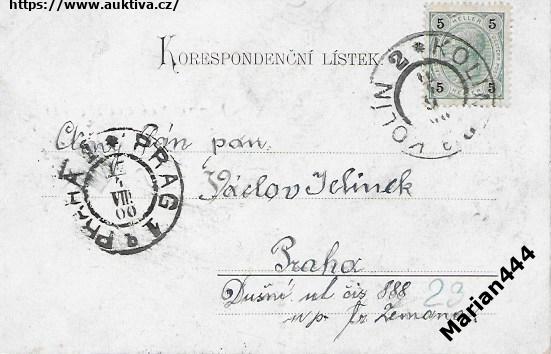 https://www.auktiva.cz/
KORESPONDENČNÍ LÍSTEK
5 HELLER 5
5 5
KOLIN 2 * KOLÍN 2
PRAG 1 * PRAHA 1
4
VIII
00
Pán pan
Václav Jelínek
Praha
Dušné ul čís 888
23
u p. Fr. Zemana
Marian444